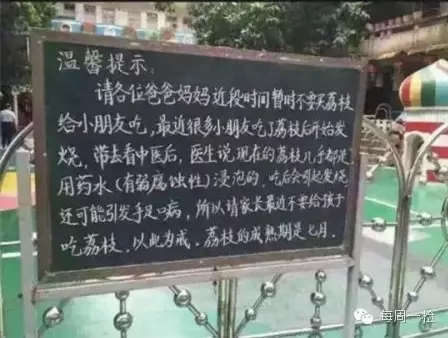 温馨提示:
请各位爸爸妈妈近段时间暂时不要买荔枝
给小朋友吃,最近很多小朋友吃了荔枝后开始发
烧,带去看中医后,医生说现在的荔枝几乎都是
用药水(有弱腐蚀性)浸泡的,吃后会引起发烧
还可能引发手足口病,所以请家长最近不要给孩子
吃荔枝,以此为戒,荔枝的成熟期是七月.
每周一检